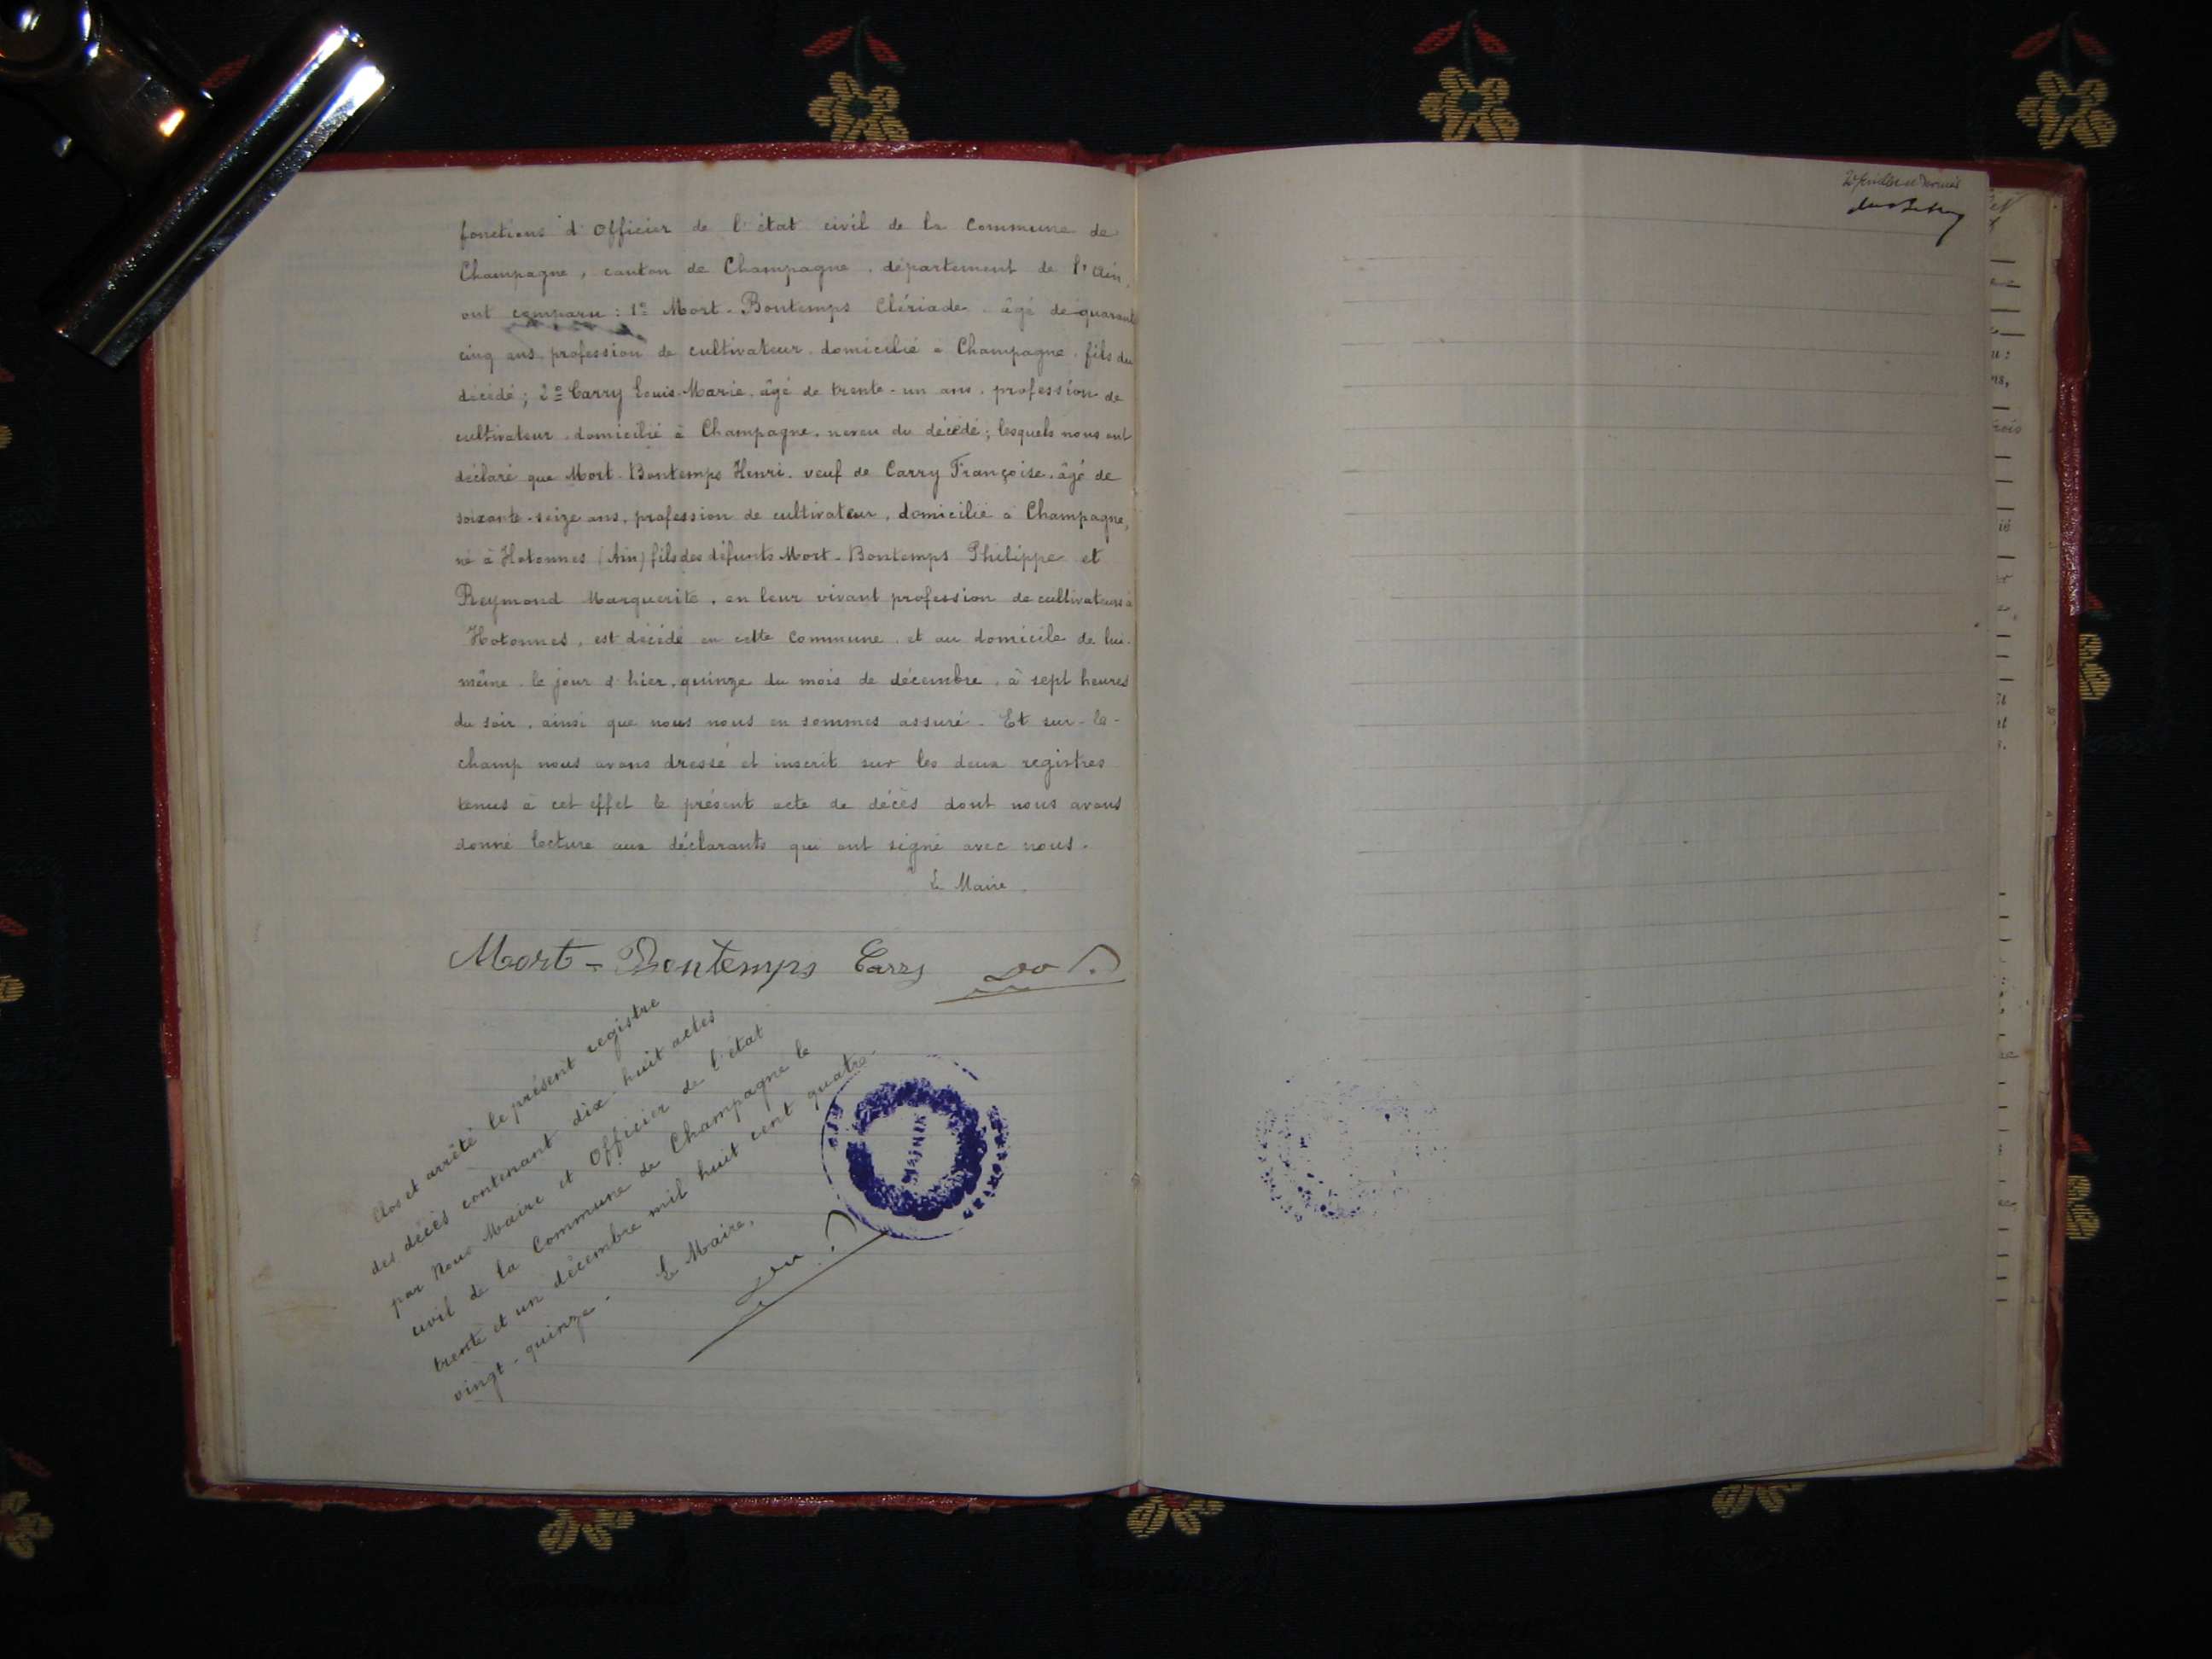 fonctions d'Officier de l'état civil de la Commune de
Champagne, canton de Champagne, département de l'Ain,
ont comparu : 1º Mort-Bontemps Clériade, âgé de quarante
cinq ans, profession de cultivateur, domicilié à Champagne, fils du
décédé ; 2º Carry Louis-Marie, âgé de trente-un ans, profession de
cultivateur, domicilié à Champagne, neveu du décédé ; lesquels nous ont
déclaré que Mort-Bontemps Henri, veuf de Carry Françoise, âgé de
soixante-seize ans, profession de cultivateur, domicilié à Champagne,
né à Hotonnes (Ain) fils des défunts Mort-Bontemps Philippe et
Reymond Marguerite, en leur vivant profession de cultivateurs à
Hotonnes, est décédé en cette Commune, et au domicile de lui-
même, le jour d'hier, quinze du mois de décembre, à sept heures
du soir, ainsi que nous nous en sommes assuré. Et sur-le-
champ nous avons dressé et inscrit sur les deux registres
tenus à cet effet le présent acte de décès dont nous avons
donné lecture aux déclarants qui ont signé avec nous.
Le Maire.
Mort-Bontemps Carry
Clos et arrêté le présent registre
des décès contenant dix-huit actes
par Nous Maire et Officier de l'état
civil de la Commune de Champagne le
trente et un décembre mil huit cent quatre-
vingt-quinze. Le Maire,